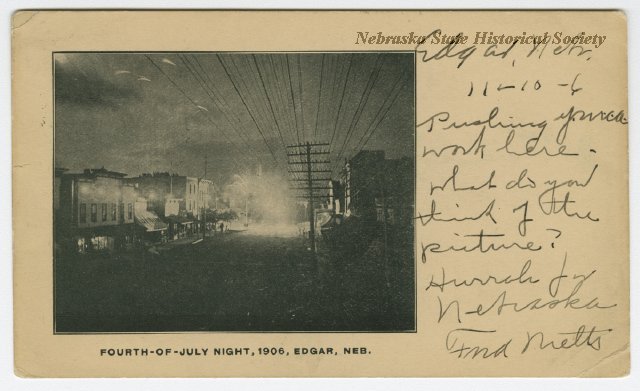 Nebraska State Historical Society
Edgar, Neb.
11-10-6
Pushing
work here.
what do you
think of the
picture?
Hurrah for
Nebraska
Fred Metts
FOURTH-OF-JULY NIGHT, 1906, EDGAR, NEB.